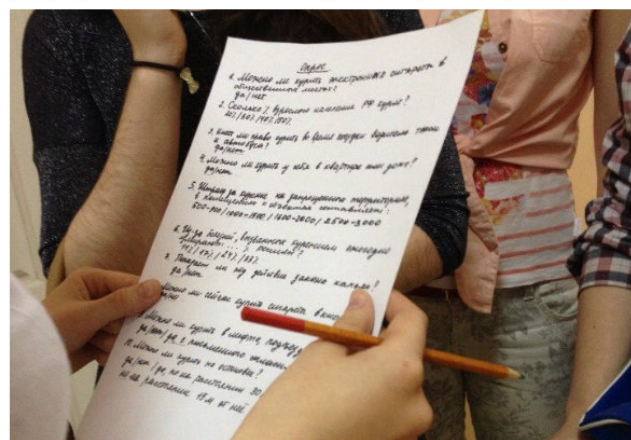 Опрос
1. Можно ли курить электронные сигареты в
общественных местах?
да/нет
2. Сколько % взрослого населения РФ курит?
/30%/40%/50%
3. Имеет ли право курить во время поездки водитель такси
и автобуса?
да/нет
4. Можно ли курить у себя в квартире или доме?
да/нет
5. Штраф за курение на запрещенной территории,
в
500- /1000-1500/1600-2000/2500-3000
6. Из-за болезней, вызванных курением ежегодно
умирают ... % россиян?
/17%/ /
7. Попадает ли под действие закона кальян?
да/нет
Можно ли сейчас курить сигареты в
Можно ли курить в лифте, подъезд
да/нет/да, с письменного
10. Можно ли курить на остановке?
да/нет/да, но на расстоянии 30
но на расстоянии 15 м от неё